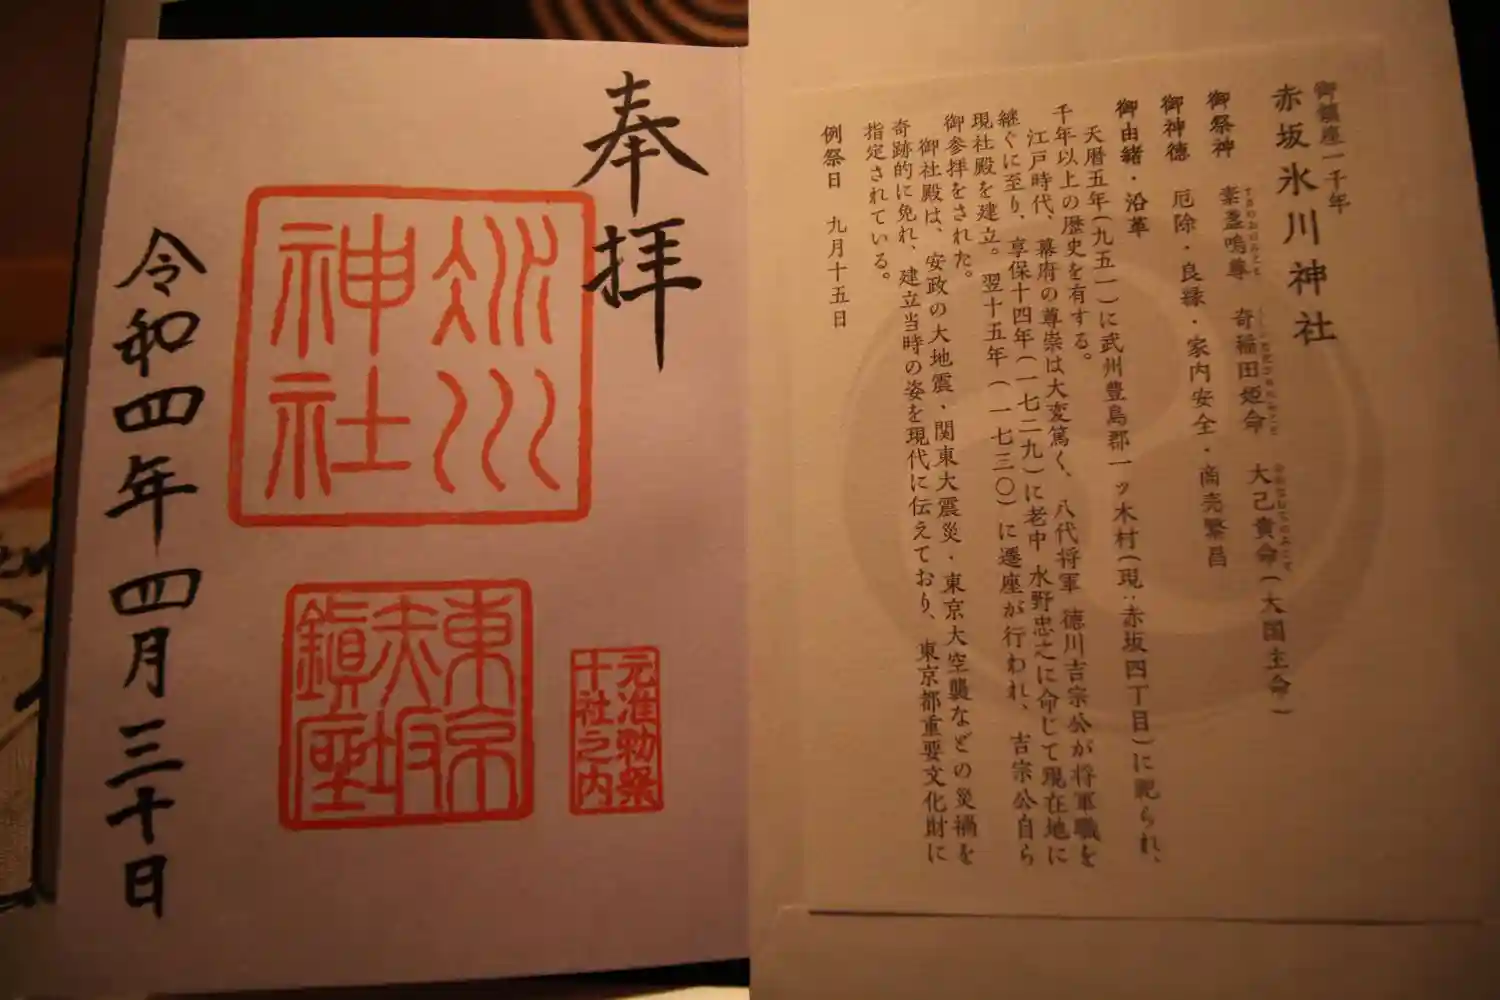 御鎮座一千年
赤坂氷川神社
御祭神 素盞嗚尊 奇稲田姫命 大己貴命(大国主命)
御神徳 厄除・良縁・家内安全・商売繁昌
御由緒・沿革
天暦五年(九五一)に武州豊島郡一ッ木村(現:赤坂四丁目)に祀られ、
千年以上の歴史を有する。
江戸時代、幕府の尊崇は大変篤く、八代将軍 徳川吉宗公が将軍職を
継ぐに至り、享保十四年(一七二九)に老中 水野忠之に命じて現在地に
現社殿を建立。翌十五年(一七三〇)に遷座が行われ、吉宗公自ら
御参拝をされた。
御社殿は、安政の大地震・関東大震災・東京大空襲などの災禍を
奇跡的に免れ、建立当時の姿を現代に伝えており、東京都重要文化財に
指定されている。
例祭日 九月十五日
奉拝
氷川
神社
東京
赤坂
鎮座
元准勅祭
十社之内
令和四年四月三十日